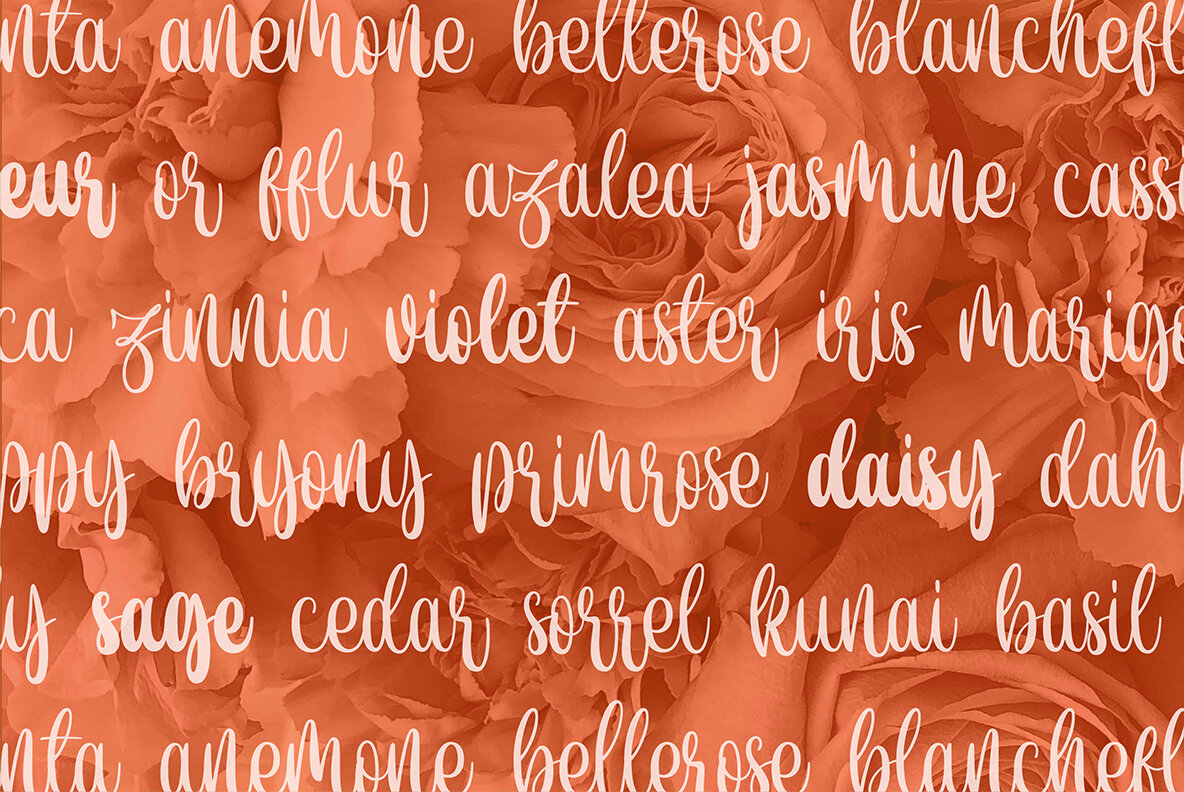 nta anemone bellerose blanchefl
eur or fflur azalea jasmine casse
ca zinnia violet aster iris marigo
ppy bryony primrose daisy dahl
ly sage cedar sorrel kunai basil
nta anemone bellerose blanchefl